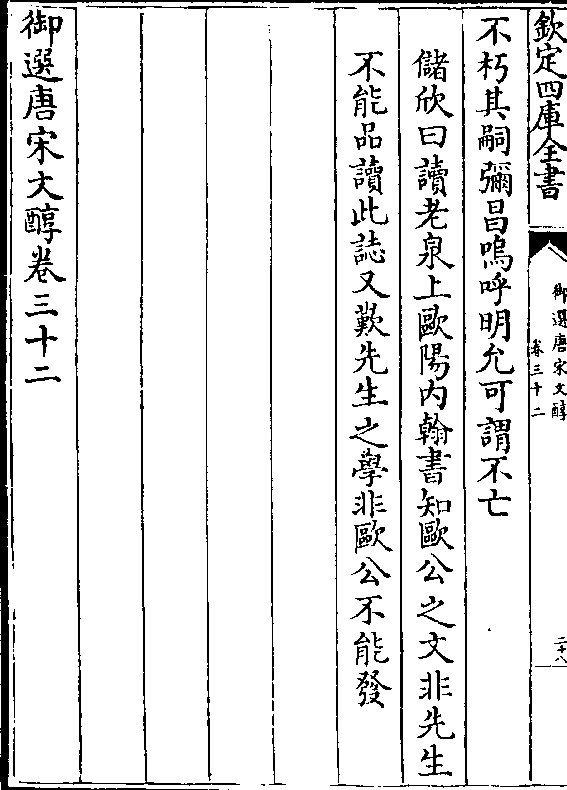 欽定四庫全書
御選唐宋文醇
卷三十二
二十八
不朽其嗣彌昌嗚呼明允可謂不亡
儲欣曰讀老泉上歐陽内翰書知歐公之文非先生
不能品讀此誌又歎先生之學非歐公不能發
御選唐宋文醇卷三十二